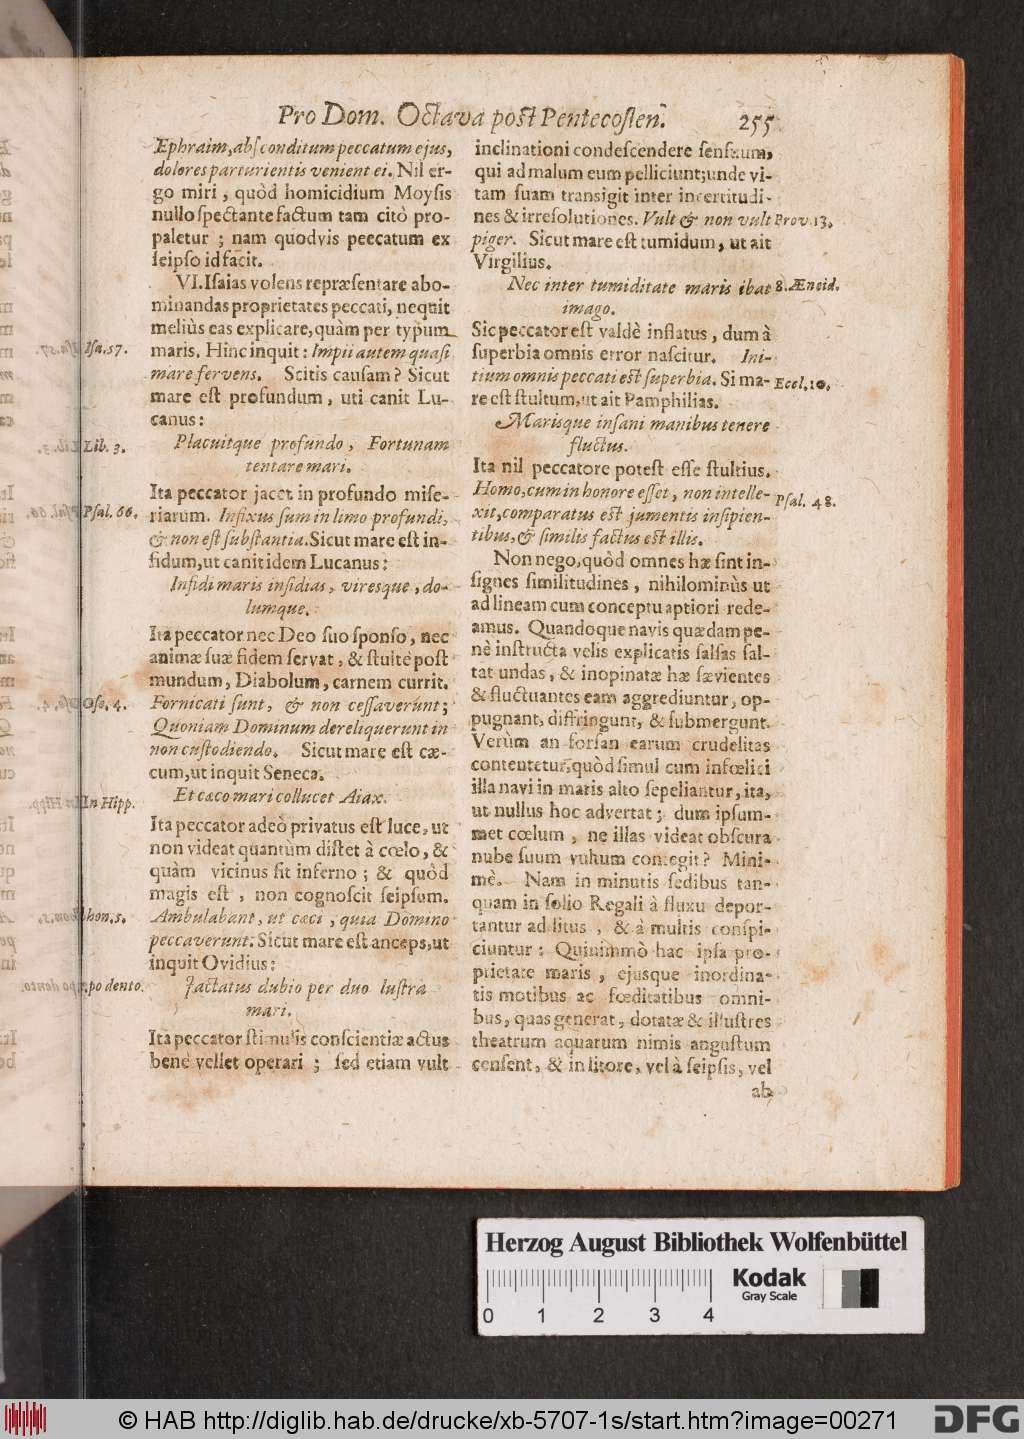 Pro Dom. Octava post Pentecosten. 255
Ephraim, absconditum peccatum ejus,
dolores parturientis venient ei. Nil er-
go miri, quòd homicidium Moysis
nullo spectante factum tam citò pro-
paletur ; nam quodvis peccatum ex
seipso id facit.
VI. Isaias volens repræsentare abo-
minandas proprietates peccati, nequit
meliùs eas explicare, quàm per typum
maris. Hinc inquit : Impii autem quasi
Isa. 57.
mare fervens. Scitis causam? Sicut
mare est profundum, uti canit Lu-
canus:
Placuitque profundo, Fortunam
Lib. 3.
tentare mari.
Ita peccator jacet in profundo mise-
riarum. Infixus sum in limo profundi,
Psal. 66.
& non est substantia. Sicut mare est in-
fidum, ut canit idem Lucanus:
Infidi maris insidias, viresque, do-
lumque.
Ita peccator nec Deo suo sponso, nec
animæ suæ fidem servat, & stultè post
mundum, Diabolum, carnem currit.
Fornicati sunt, & non cessaverunt;
Ose. 4.
Quoniam Dominum dereliquerunt in
non custodiendo. Sicut mare est cæ-
cum, ut inquit Seneca.
Et cæco mari collucet Aiax.
In Hipp.
Ita peccator adeò privatus est luce, ut
non videat quantùm distet à cœlo, &
quàm vicinus sit inferno ; & quòd
magis est, non cognoscit seipsum.
Ambulabant, ut cæci, quia Domino
hon. 5.
peccaverunt. Sicut mare est anceps, ut
inquit Ovidius:
Jactatus dubio per duo lustra
po dento.
mari.
Ita peccator stimulis conscientiæ actus
benè vellet operari ; sed etiam vult
inclinationi condescendere sensuum,
qui ad malum eum pelliciunt; unde vi-
tam suam transigit inter incertitudi-
nes & irresolutiones. Vult & non vult
Prov. 13.
piger. Sicut mare est tumidum, ut ait
Virgilius.
Nec inter tumiditate maris ibat
8. Æneid.
imago.
Sic peccator est valdè inflatus, dum à
superbia omnis error nascitur. Ini-
tium omnis peccati est superbia. Si ma-
Eccl. 10.
re est stultum, ut ait Pamphilias.
Marisque insani manibus tenere
fluctus.
Ita nil peccatore potest esse stultius.
Homo, cum in honore esset, non intelle-
Psal. 48.
xit, comparatus est jumentis insipien-
tibus, & similis factus est illis.
Non nego, quòd omnes hæ sint in-
signes similitudines, nihilominùs ut
ad lineam cum conceptu aptiori rede-
amus. Quandoque navis quædam pe-
nè instructa velis explicatis salsas sal-
tat undas, & inopinatæ hæ sævientes
& fluctuantes eam aggrediuntur, op-
pugnant, diffringunt, & submergunt.
Verùm an forsan earum crudelitas
contentetur, quòd simul cum infœlici
illa navi in maris alto sepeliantur, ita,
ut nullus hoc advertat; dum ipsum-
met cœlum, ne illas videat obscura
nube suum vultum contegit? Mini-
mè. Nam in minutis sedibus tan-
quam in solio Regali à fluxu depor-
tantur ad litus, & à multis conspi-
ciuntur : Quinimmò hac ipsa pro-
prietate maris, ejusque inordina-
tis motibus ac fœditatibus omni-
bus, quas generat, dotatæ & illustres
theatrum aquarum nimis angustum
censent, & in litore, vel à seipsis, vel
ab
Herzog August Bibliothek Wolfenbüttel
Kodak
Gray Scale
0 1 2 3 4
© HAB http://diglib.hab.de/drucke/xb-5707-1s/start.htm?image=00271
DFG